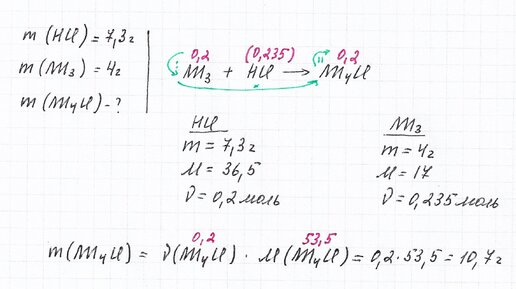 m (HCl) = 7,3г
m (NH₃) = 4г
m (NH₄Cl) - ?
0,2 (0,235) 0,2
NH₃ + HCl → NH₄Cl
HCl
m = 7,3г
M = 36,5
ν = 0,2 моль
NH₃
m = 4г
M = 17
ν = 0,235 моль
0,2 53,5
m (NH₄Cl) = ν (NH₄Cl) · M (NH₄Cl) = 0,2 · 53,5 = 10,7г